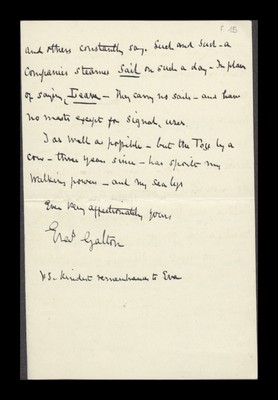 and others constantly say. Such and Such - a
Companies steamer Sail on such a day - In place
of saying, Leave - They carry no sails - and have
no masts except for signal, uses
I as well as possible - but the Toss by a
cow - three years since - has spoilt my
Walking powers - and my Sea legs
Ever Very affectionately yours
Galton
P.S. Kindest remembrances to Eva